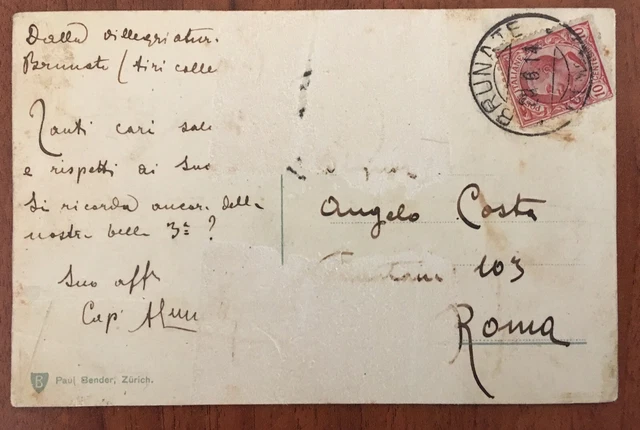 Dalla villeggiatur.
Brunate
Tanti cari
e rispetti ai
Si ricorda ancora della
nostra bella 3ª ?
Suo aff
Cap
BRUNATE
Angelo Costa
103
Roma
B Paul Bender, Zürich.